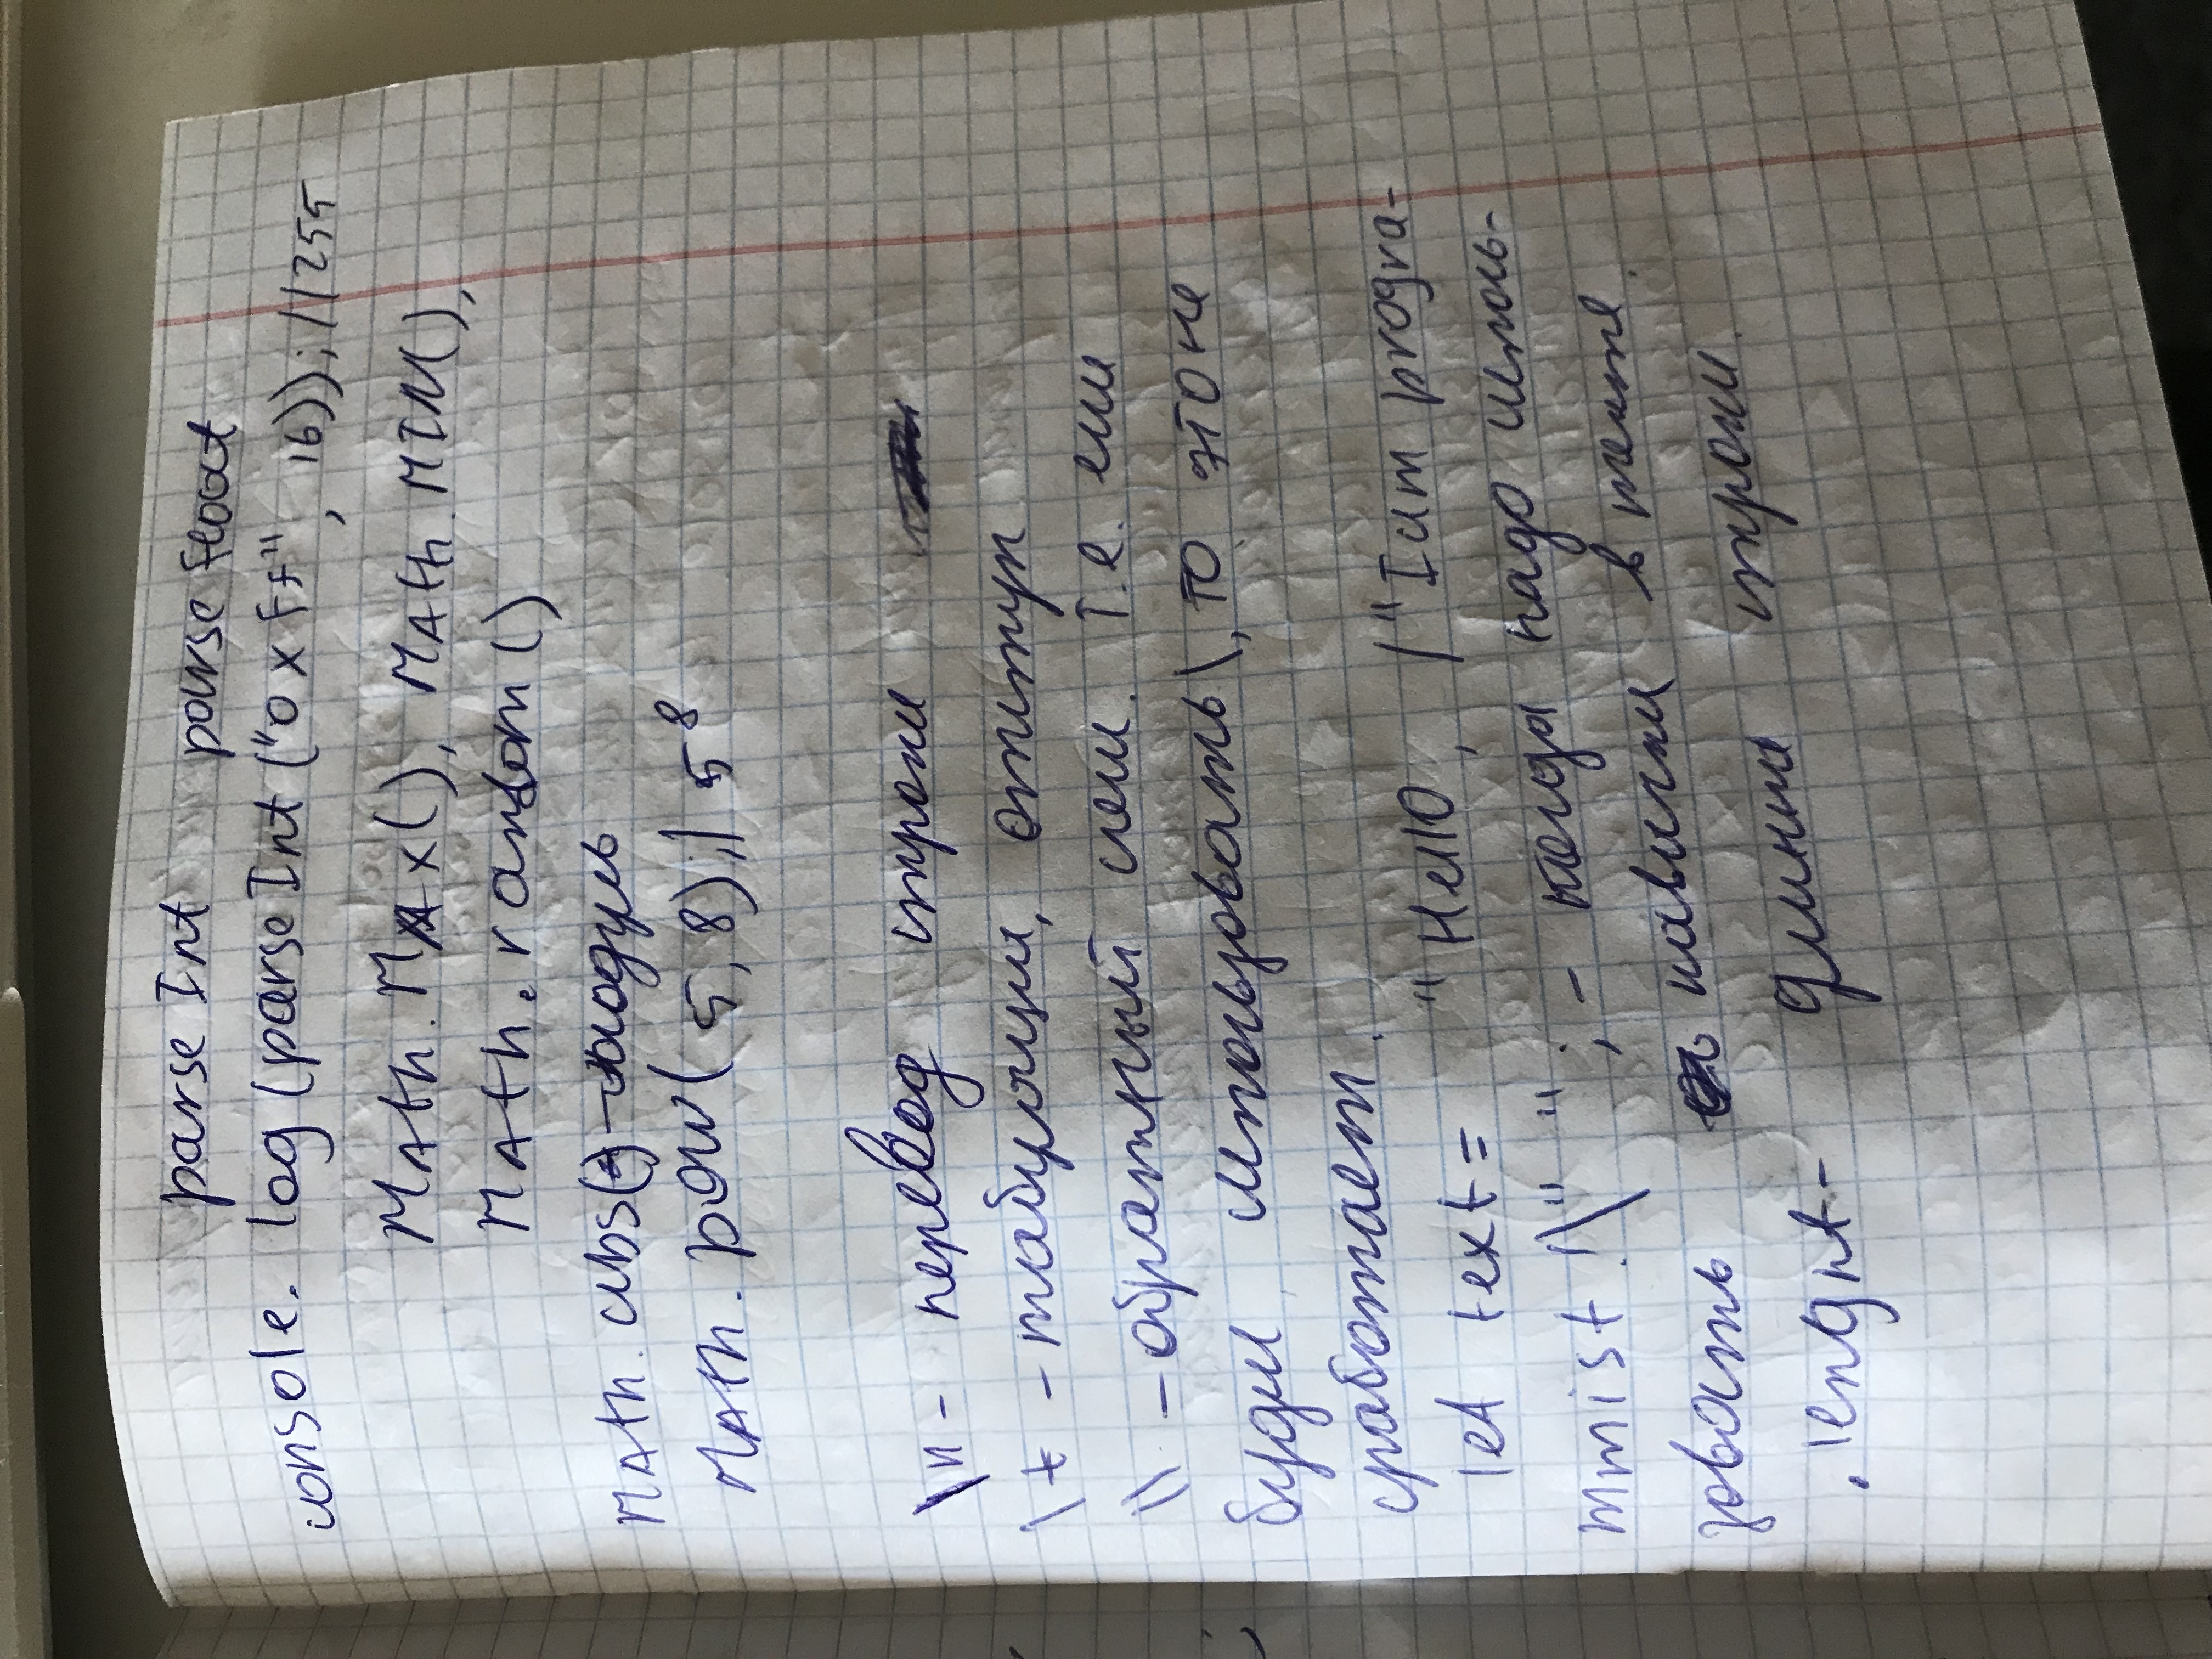 parse Int parse Float
console. log (parse Int ("0xFf", 16)); //255
Math. MAx(), Math. MIN(),
Math. random ()
Math. abs() - модуль
Math. pow( 5, 8);/ 5⁸
\n - перевод строки
\t - табуляция, отступ
\\ - обратный слеш. Т.е. если
будем использовать \, то это не
сработает.
let text = "Hello, /"I am progra-
mmist!\" "; - когда надо исполь-
зовать кавычки в тексте.
.lenght - длинна строки.